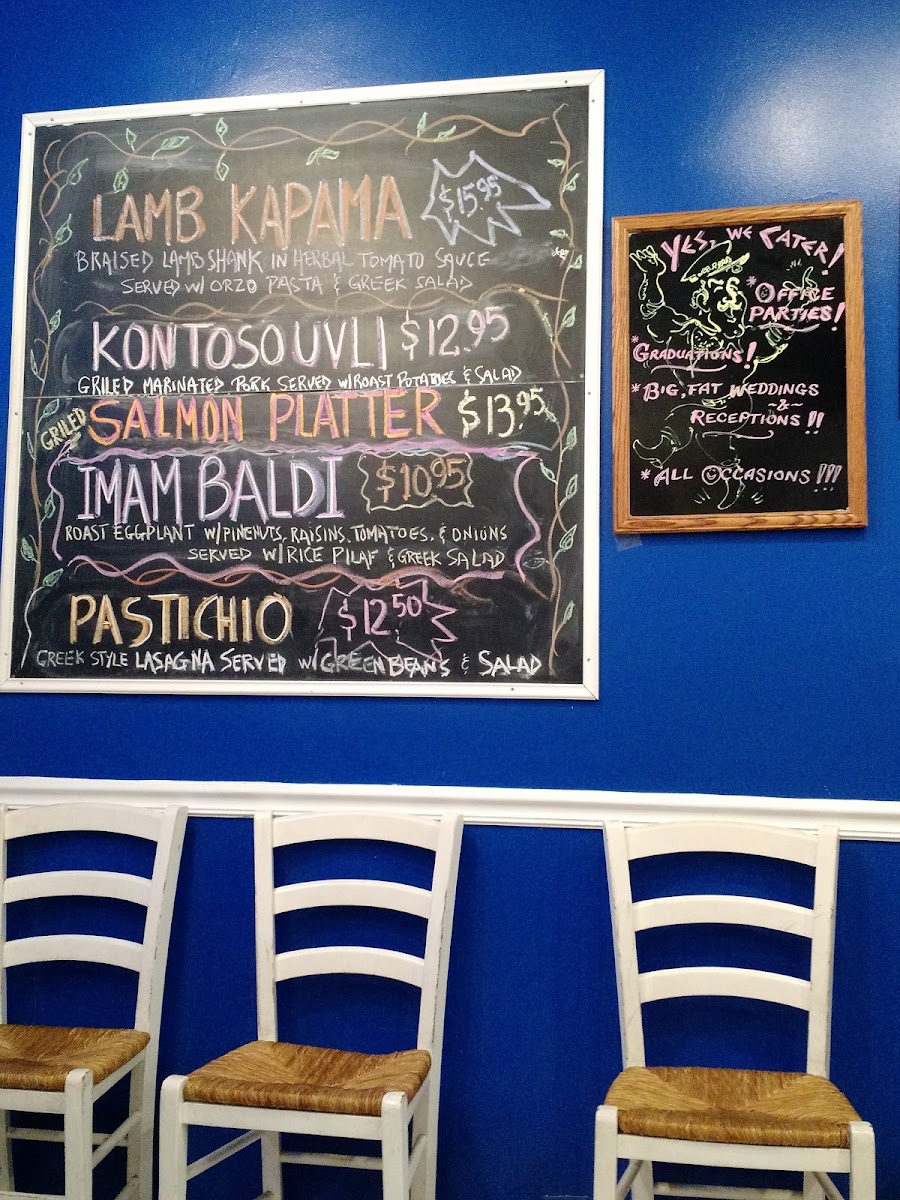 LAMB KAPAMA $15.95
BRAISED LAMB SHANK IN HERBAL TOMATO SAUCE
SERVED W/ ORZO PASTA & GREEK SALAD
KONTOSOUVLI $12.95
GRILED MARINATED PORK SERVED W/ROAST POTATOES & SALAD
GRILED SALMON PLATTER $13.95
IMAM BALDI $10.95
ROAST EGGPLANT W/PINENUTS, RAISINS, TOMATOES, & ONIONS
SERVED W/RICE PILAF & GREEK SALAD
PASTICHIO $12.50
GREEK STYLE LASAGNA SERVED W/GREEN BEANS & SALAD
YES, WE CATER!
*OFFICE
PARTIES!
*GRADUATIONS!
*BIG, FAT WEDDINGS
-&-
RECEPTIONS!!
*ALL OCCASIONS!!!